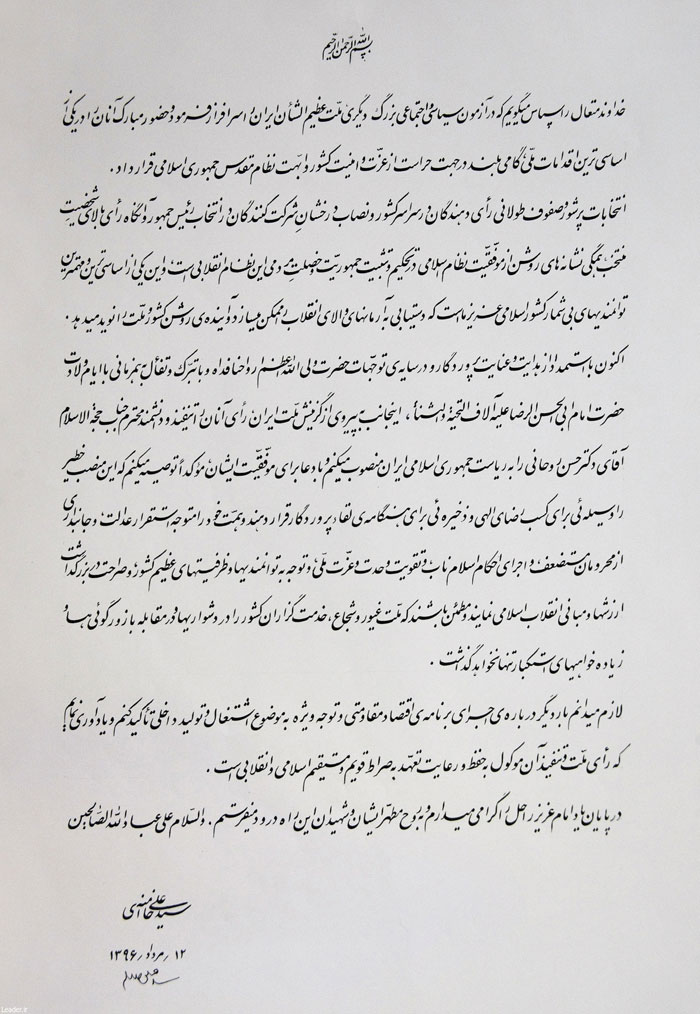 بسم الله الرحمن الرحیم
خداوند متعال را سپاس میگویم که در آزمون سیاسی و اجتماعی بزرگ دیگری ملت عظیم الشأن ایران را سرافراز فرمود و حضور مبارک آنان را در یکی از
اساسی ترین اقدامات ملّی گامی بلند در جهت حراست از عزّت و امنیت کشور و ابهت نظام مقدس جمهوری اسلامی قرار داد.
انتخابات پرشور و صفوف طولانی رأی دهندگان در سراسر کشور و نصاب درخشان شرکت کنندگان در انتخاب رئیس جمهور و آنگاه رأی بالای شخصیت
منتخب، همگی نشانه های روشن از موفقیّت نظام اسلامی در تحکیم و تثبیت جمهوریت و خصلت مردمی این نظام انقلابی است و این یکی از اساسی ترین و مهمترین
توانمندیهای بی شمار کشور اسلامی عزیز ما است که دستیابی به آرمانهای والای انقلاب را ممکن میسازد و آینده ی روشن کشور و ملت را نوید میدهد.
اکنون با استمداد از هدایت و عنایت پروردگار و در سایه ی توجهات حضرت ولی الله الاعظم ارواحنا فداه و با تبرّک و تفأل به همزمانی با ایام ولادت
حضرت امام ابی الحسن الرضا علیه آلاف التحیة و الثناء، اینجانب به پیروی از گزینش ملّت ایران رأی آنان را تنفیذ و دانشمند محترم جناب حجة الاسلام
آقای دکتر حسن روحانی را به ریاست جمهوری اسلامی ایران منصوب میکنم و با دعا برای موفقیّت ایشان مؤکداً توصیه میکنم که این منصب خطیر
را وسیله ئی برای کسب رضای الهی و ذخیره ئی برای هنگامه ی لقاء پروردگار قرار دهند و همّت خود را متوجه استقرار عدالت و جانبداری
از محرومان مستضعف و اجرای احکام اسلام ناب و تقویت وحدت و عزّت ملّی و توجه به توانمندیها و ظرفیتهای عظیم کشور و صراحت در بزرگداشت
ارزشها و مبانی انقلاب اسلامی نمایند و مطمئن باشند که ملت غیور و شجاع، خدمت گزاران کشور را در دشواریها و در مقابله با زورگوئی ها و
زیاده خواهیهای استکبار تنها نخواهد گذاشت.
لازم میدانم بار دیگر درباره ی اجرای برنامه ی اقتصاد مقاومتی و توجه ویژه به موضوع اشتغال و تولید داخلی تأکید کنم و یادآوری نمایم
که رأی ملّت و تنفیذ آن موکول به حفظ و رعایت تعهد به صراط قویم و مستقیم اسلامی و انقلابی است.
در پایان یاد امام عزیز راحل را گرامی میدارم و به روح مطهر ایشان و شهیدان این راه درود میفرستم. والسّلام علی عباد الله الصالحین
سیدعلی خامنه ای
۱۲ / مرداد / ۱۳۹۶
Leader.ir